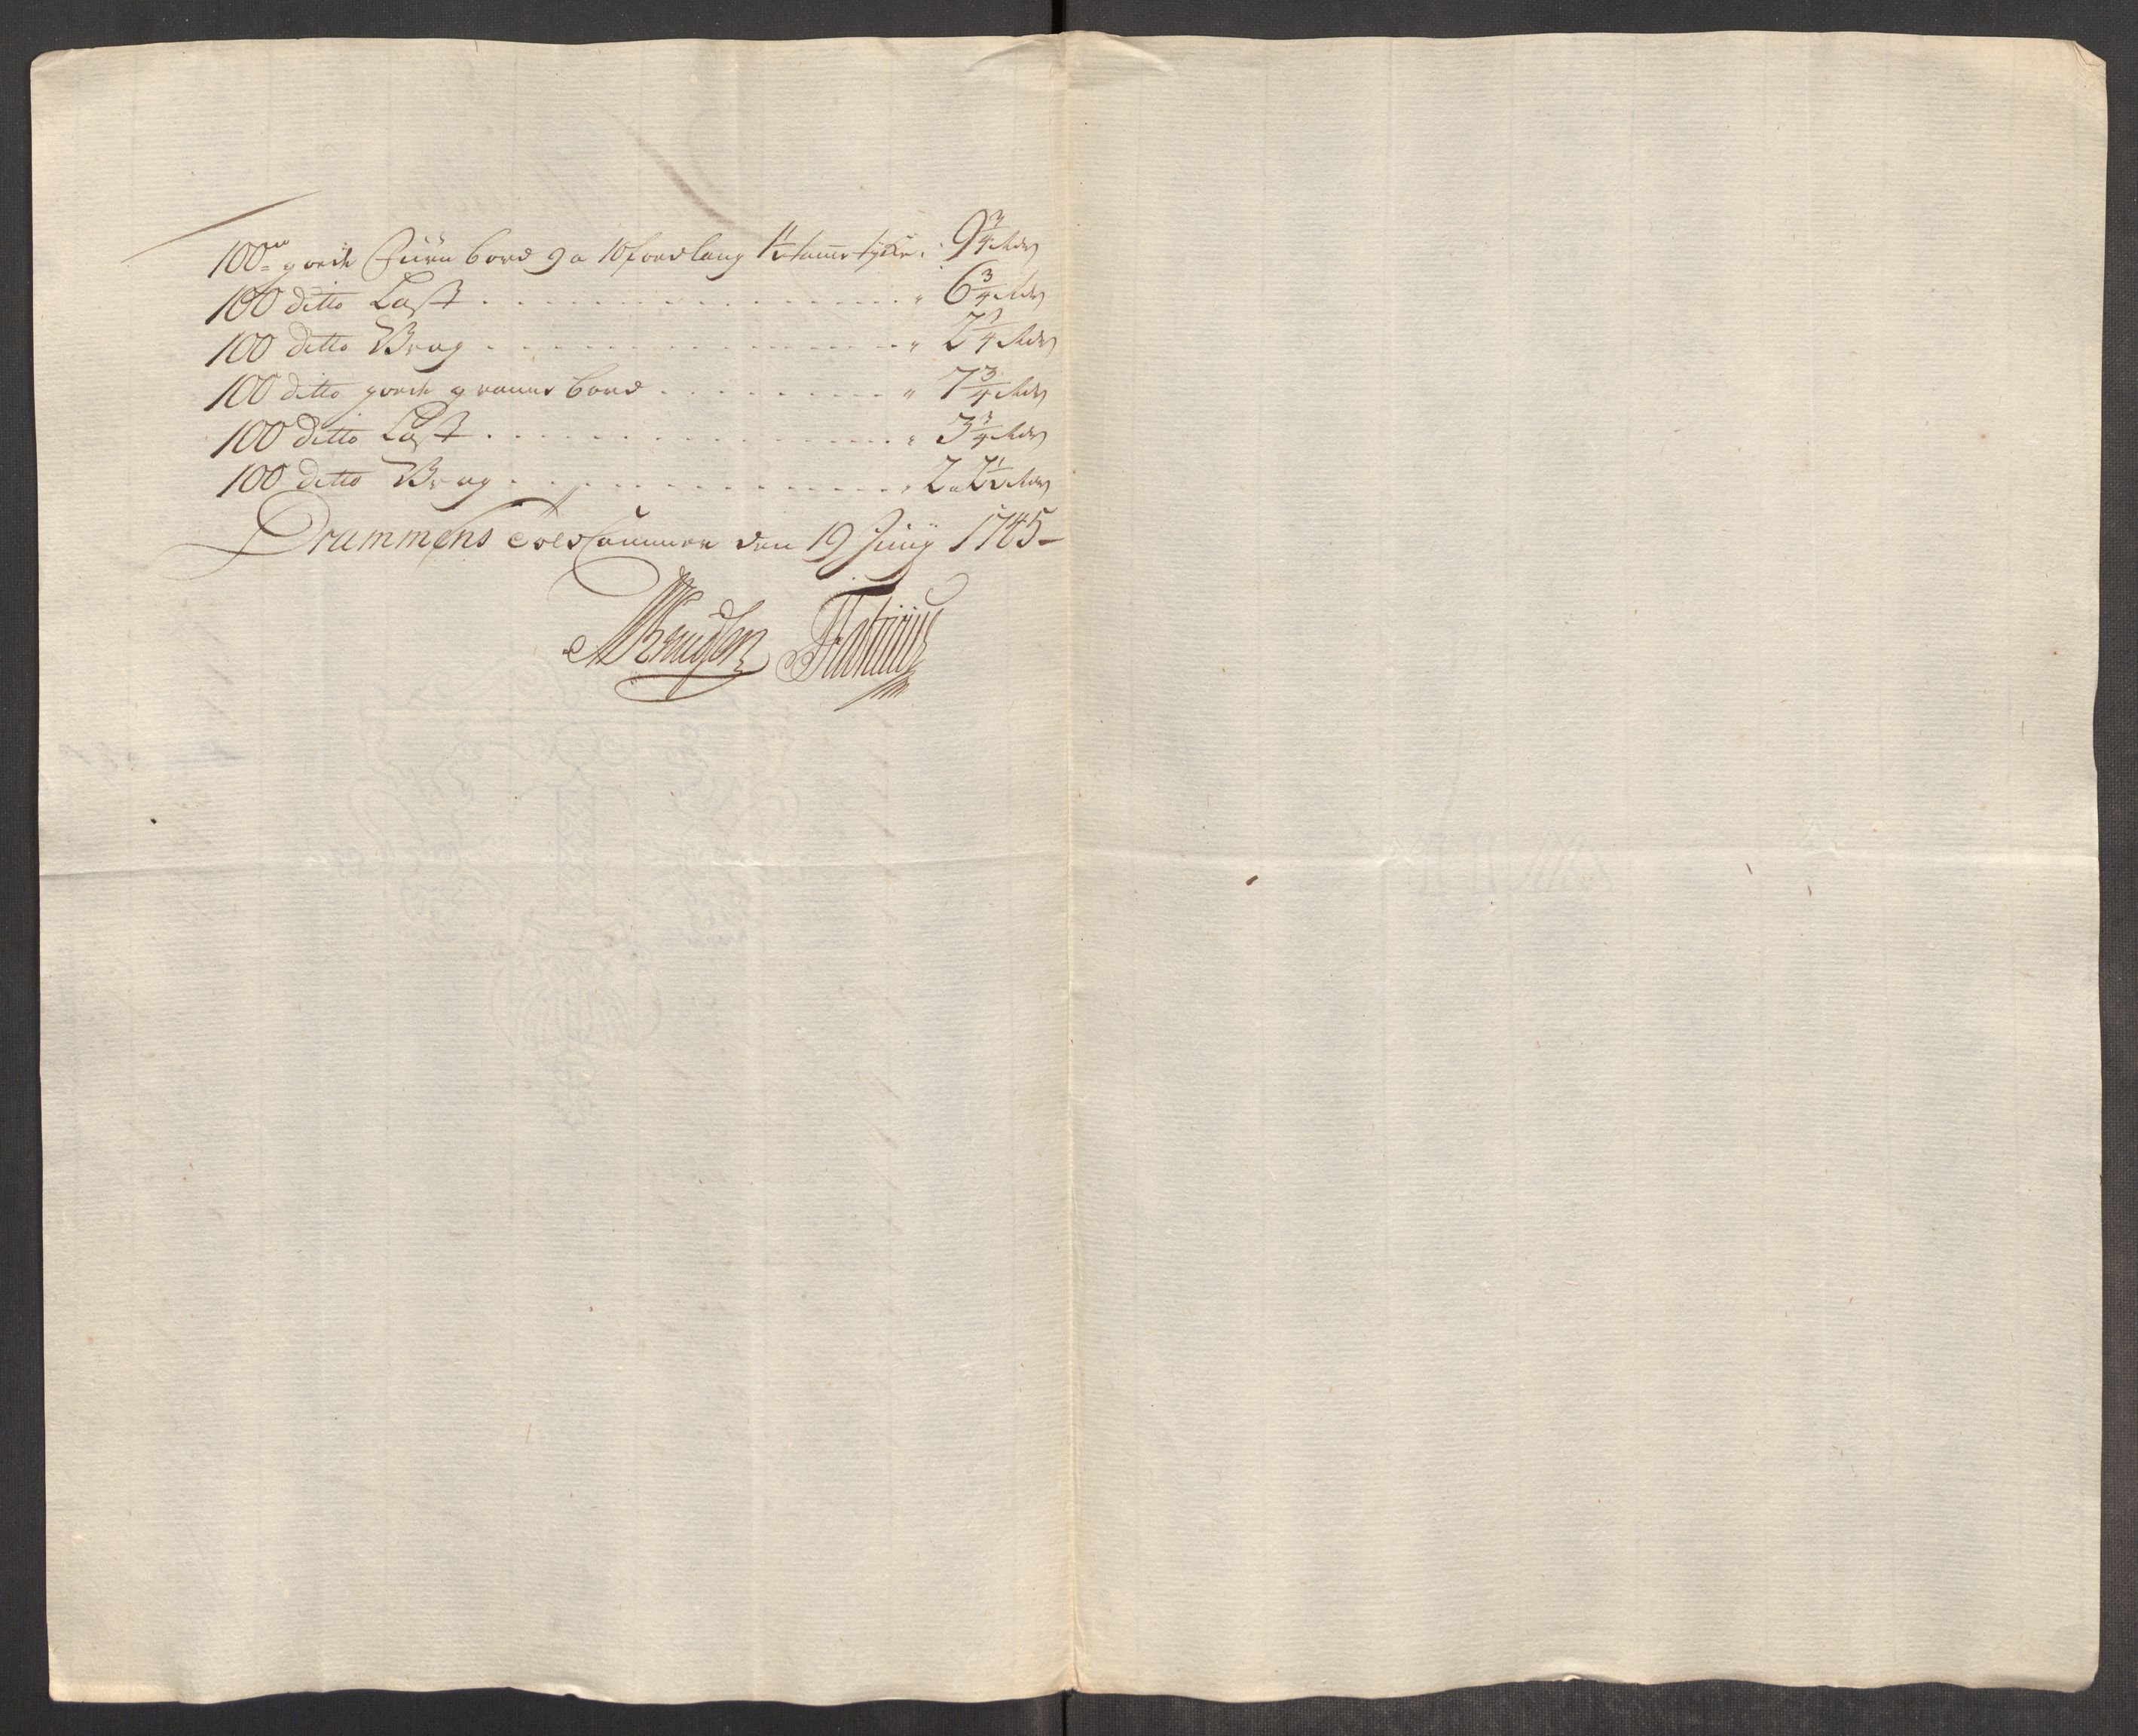 100de goede Furu bord 9 a 10 foed lang 1½ tomme tycke " 9¾ Rdr
100 ditto Last . . . . . . . . . . . . . . . . " 6¾ Rdr
100 ditto Vrag . . . . . . . . . . . . . . . . " 2¾ Rdr
100 ditto goede granne bord . . . . . . . . . " 7¾ Rdr
100 ditto Last . . . . . . . . . . . . . . . . " 3¾ Rdr
100 ditto Vrag . . . . . . . . . . . . . . . . " 2 a 2½ Rdr
Drammens Told Cammer den 19 Junij 1745